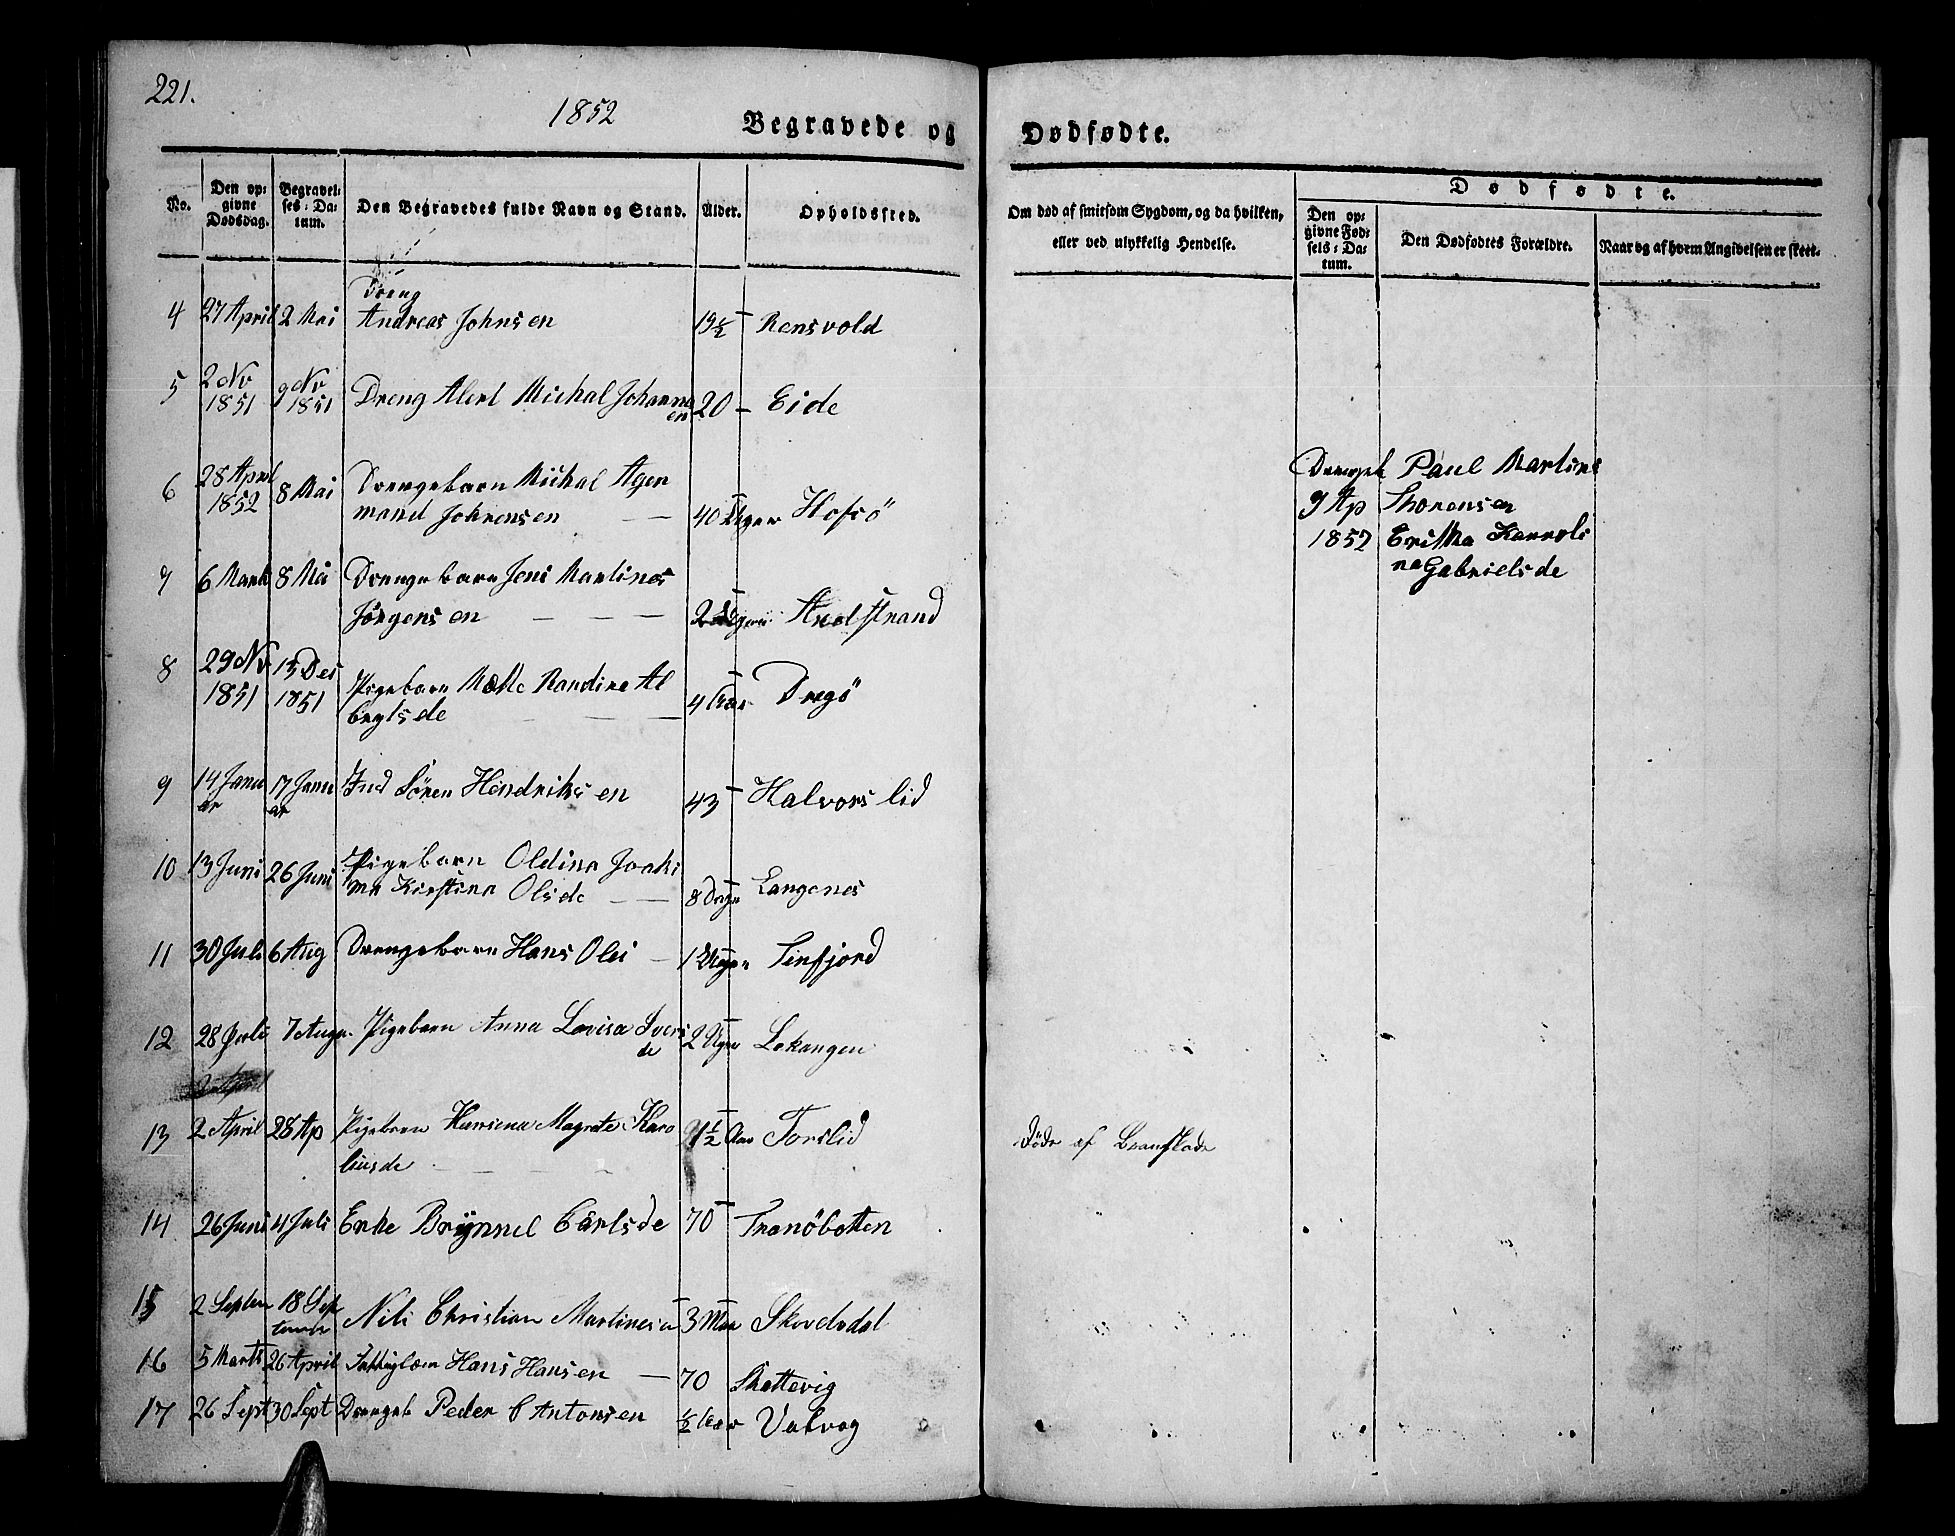 221.
1852
Begravede og Dødfødte.
No.
Den opgivne Dødsdag.
Begravelses-Datum.
Den Begravedes fulde Navn og Stand.
Alder.
Opholdssted.
Om død af smitsom Sygdom, og da hvilken, eller ved ulykkelig Hendelse.
Dødfødte.
Den opgivne Fødsels-Datum.
Den Dødfødtes Forældre.
Naar og af hvem Angivelsen er skeet.
Dreng
4 27 April 2 Mai Andreas Johnsen 19½ Rensvold
5 2 Nv 1851 9 Nv 1851 Dreng Alert Michal Johannesen 20 – Eide
6 28 April 1852 8 Mai Drengebarn Michal Agen
mand Johrensen 40 Uger Hofsö
Drengeb Paul Martins
9 Ap Thorensen
1852 Erikka Karroli
na Gabrielsde
7 6 Marts 8 Mai Drengebarn Jens Martines
Jörgensen 2 Uger
8 29 Nv 1851 15 Des 1851 Pigebarn Mette Randine Al
bregtsde 4 Aar Dregö
9 14 Januar 17 Januar Ind Sören Hendriksen 43 Halvorslid
10 13 Juni 26 Juni Pigebarn Oldina Joaki
ma Kirstina Olsde 8 Dage Langenes
11 30 Juli 6 Aug Drengebarn Hans Olei 1 Uger Finfjord
12 28 Juli 7 Augs. Pigebarn Anna Lovisa Iversde 2 Uger Lekangen
13 2 April 28 Ap Pigebarn Hansena Magrete Karo
liusde 1½ Aar Torslid Döde af Brandskade
14 26 Juni 4 Juli Enke Brynnel Carlsde 70 Tranöbotten
15 2 Septem 18 Septembr Nils Christian Martinesen 3 Maa Skovdedal
16 5 Marts 26 April Fattiglem Hans Hansen 70 Skattevig
17 26 Sept 30 Sept Drengeb Peder C Antonsen ½ Aar Valvag